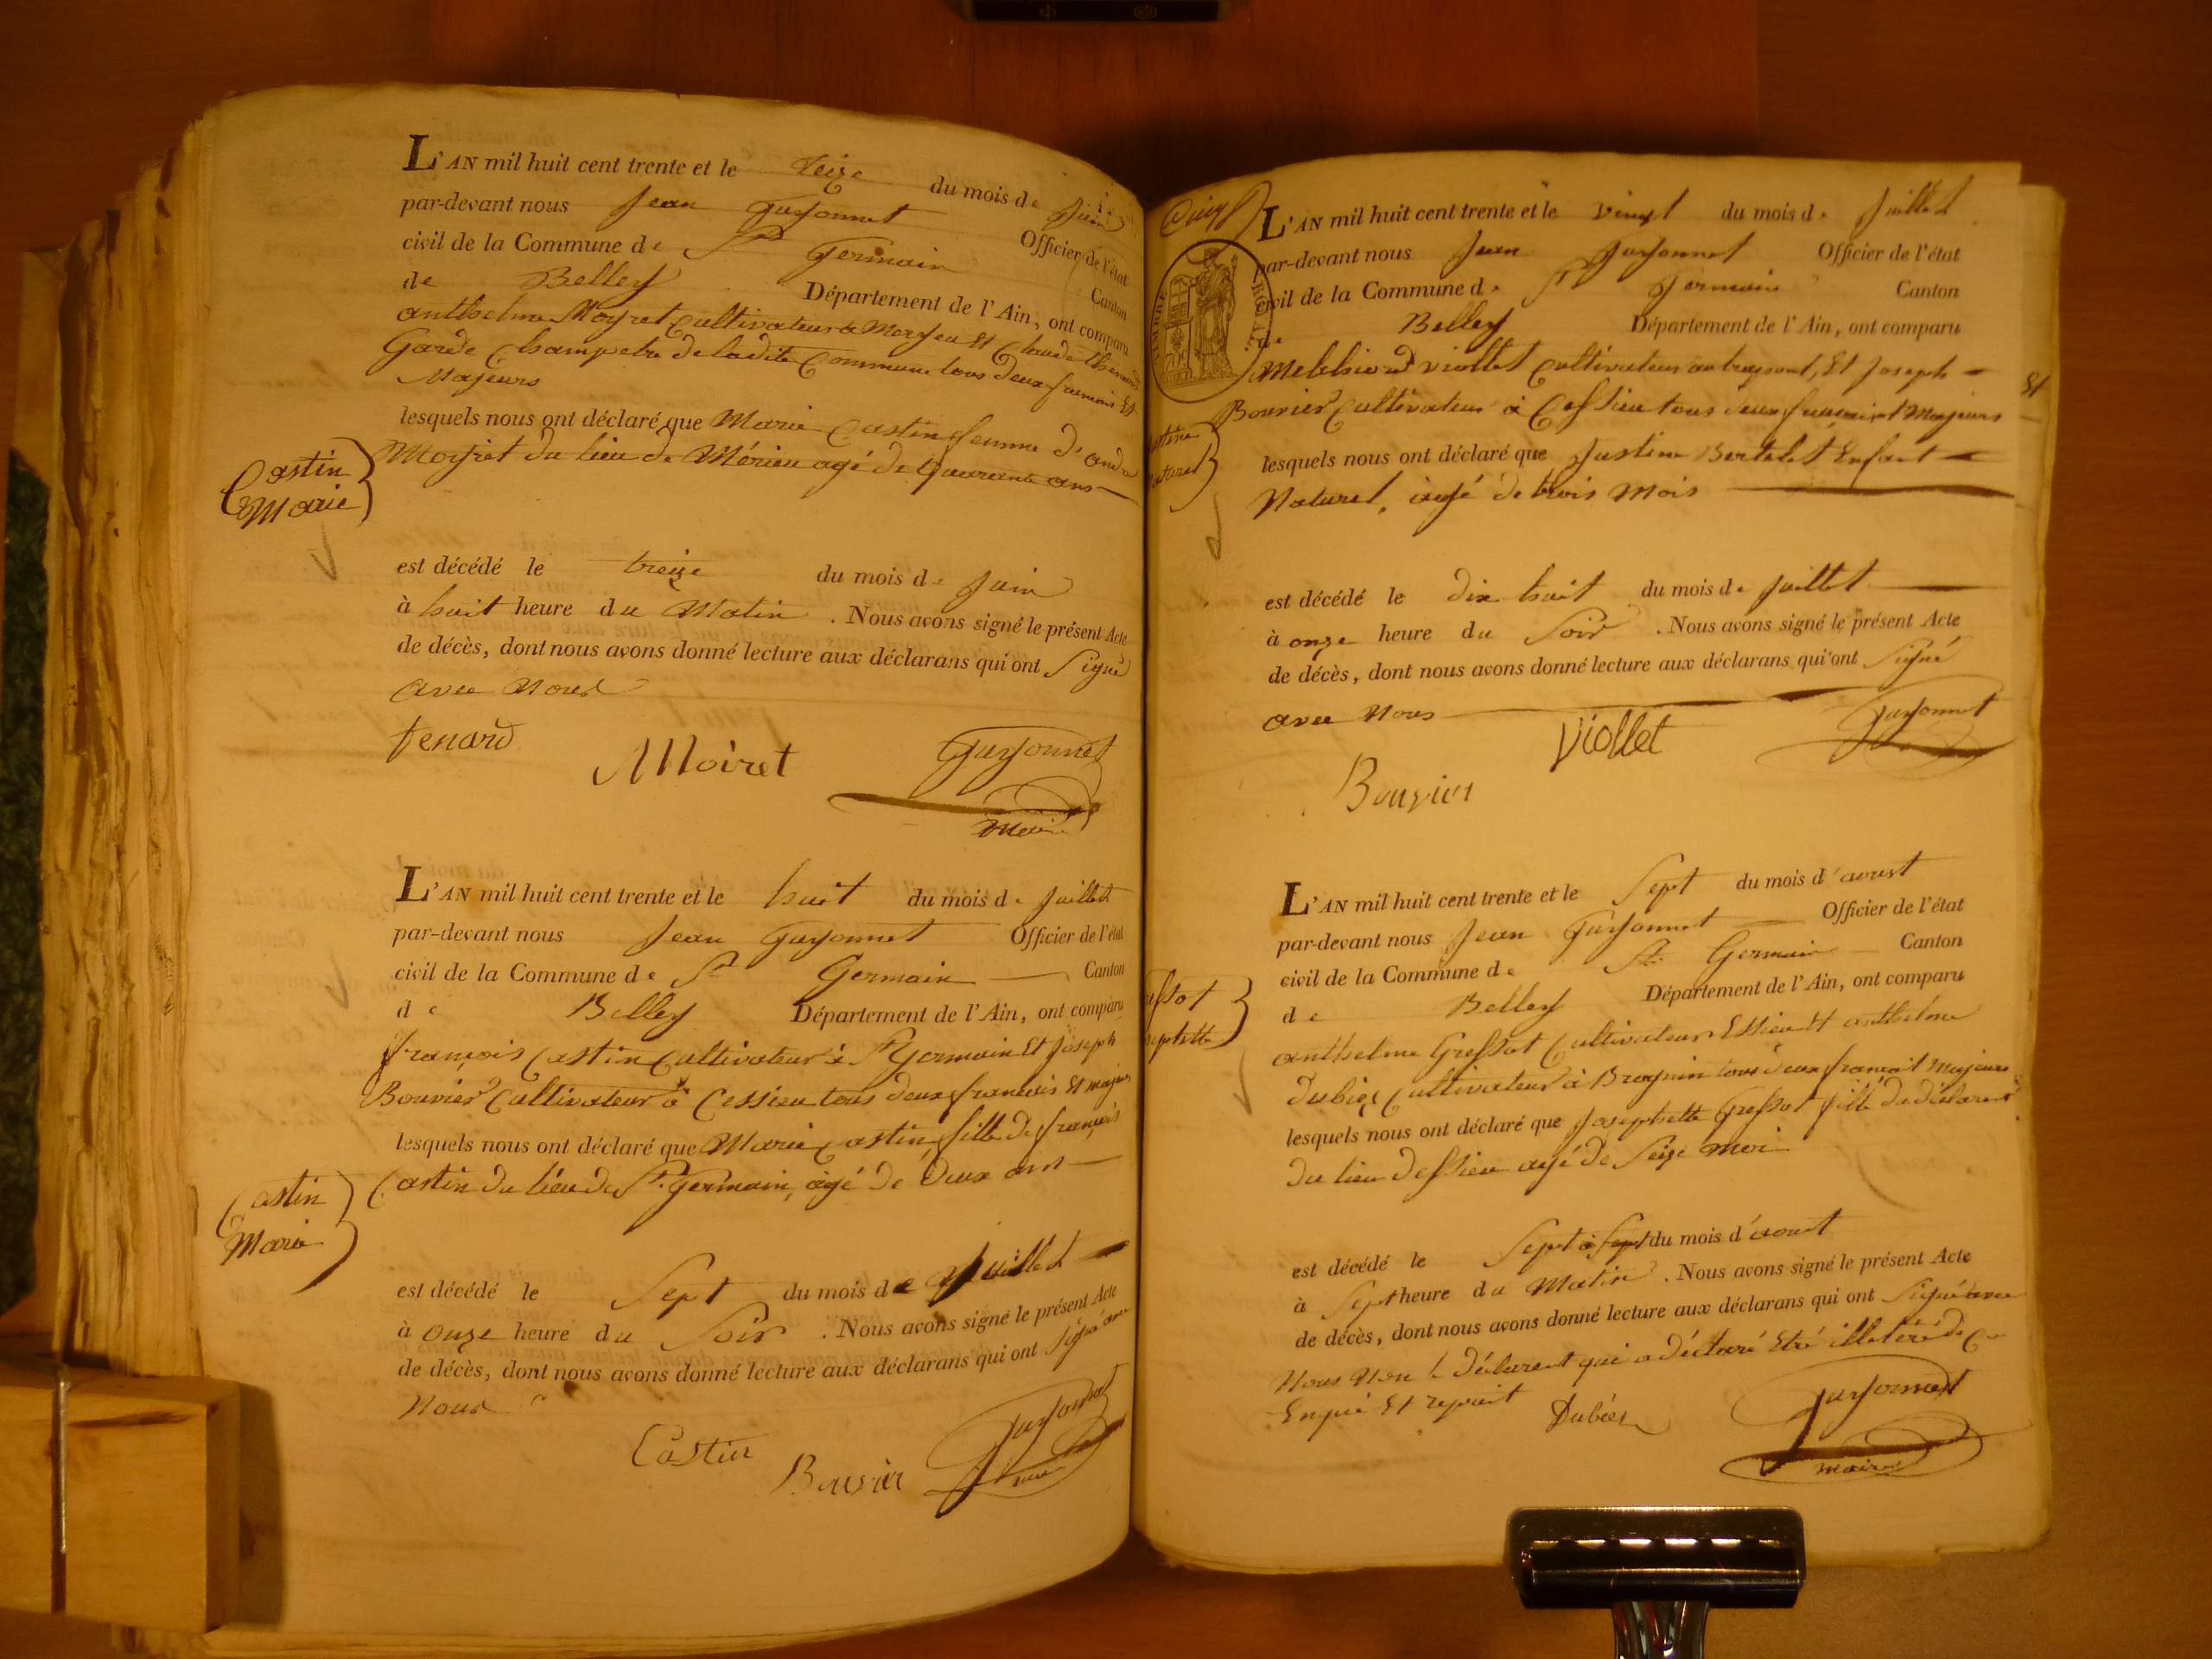 L'AN mil huit cent trente et le seize du mois de Juin
par-devant nous Jean Guyonnet Officier de l'état
civil de la Commune de St Germain Canton
de Belley Département de l'Ain, ont comparu
anthelme Moyret Cultivateur à Meryeu Et Claude thenard
Garde Champetre de ladite Commune tous deux francais Et
Majeurs
lesquels nous ont déclaré que Marie Castin femme d'andre
Moyret du lieu de Mérieu agé de quarante ans
Castin
Marie
est décédé le treize du mois de Juin
à huit heure du Matin . Nous avons signé le présent Acte
de décès, dont nous avons donné lecture aux déclarans qui ont Signé
avec Nous
tenard
Moiret
Guyonnet
Maire
L'AN mil huit cent trente et le huit du mois de Juillet
par-devant nous Jean Guyonnet Officier de l'état
civil de la Commune de St Germain Canton
de Belley Département de l'Ain, ont comparu
François Castin Cultivateur à St Germain Et Joseph
Bouvier Cultivateur à Cessieu tous deux francais Et majeurs
lesquels nous ont déclaré que Marie Castin fille de françois
Castin du lieu de St. Germain, agé de deux ans
Castin
Marie
est décédé le Sept du mois de Juillet
à onze heure du Soir . Nous avons signé le présent Acte
de décès, dont nous avons donné lecture aux déclarans qui ont Signé avec
Nous
Castin
Bouvier
Guyonnet
maire
L'AN mil huit cent trente et le vingt du mois de Juillet
par-devant nous Jean Guyonnet Officier de l'état
civil de la Commune de St Germain Canton
de Belley Département de l'Ain, ont comparu
TIMBRE ROYAL.
Melchiord viollet Cultivateur au trapont, Et Joseph
Bouvier Cultivateur à Cessieu tous deux francais et Majeurs
Et
lesquels nous ont déclaré que Justine Bertelet Enfant
Naturel, agé de trois Mois
est décédé le dix huit du mois de Juillet
à onze heure du Soir . Nous avons signé le présent Acte
de décès, dont nous avons donné lecture aux déclarans qui ont Signé
avec Nous
Viollet
Guyonnet
Bouvier
L'AN mil huit cent trente et le Sept du mois d'aoust
par-devant nous Jean Guyonnet Officier de l'état
civil de la Commune de St. Germain Canton
de Belley Département de l'Ain, ont comparu
anthelme Gressot Cultivateur Essieu Et anthelme
Dubiez Cultivateur à Brognin tous deux francais et Majeurs
lesquels nous ont déclaré que Josephette Gressot fille du déclarent
du lieu dessieu agé de Seize Moi
est décédé le Sept à Sept du mois d'aout
à Sept heure du Matin . Nous avons signé le présent Acte
de décès, dont nous avons donné lecture aux déclarans qui ont Signé avec
Nous Non le déclarent qui a déclaré Etre illeteré de Ce
Enquis Et requis
Dubiez
Guyonnet
maire